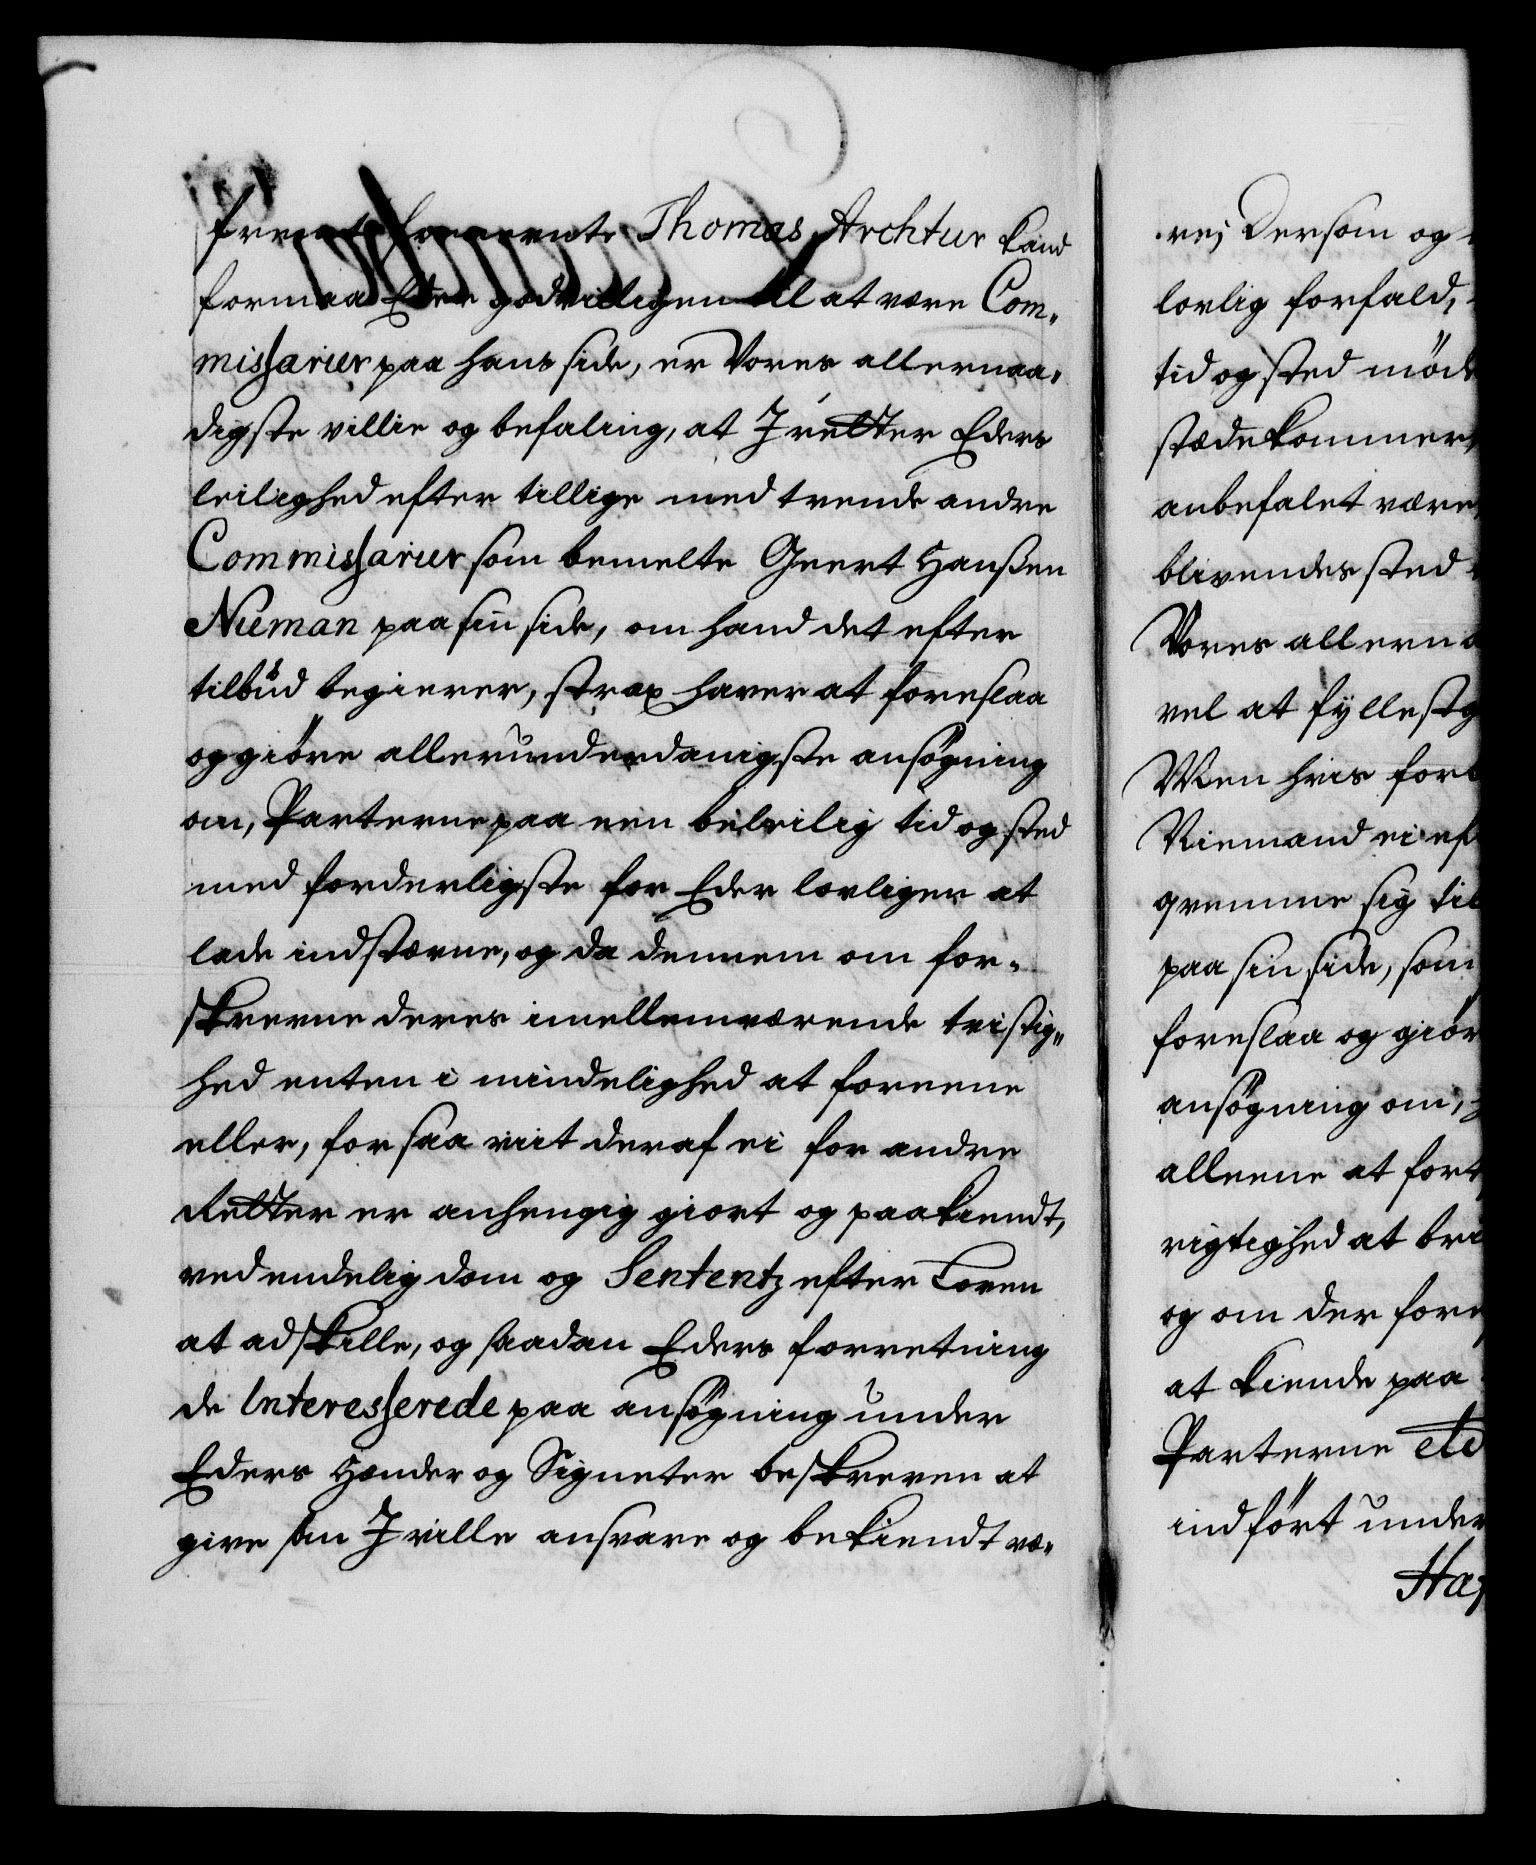 fremt fornevnte Thomas Archtur kand
formaa Eder godvilligen til at være Com„
missarier paa hans side, er Vores allernaa„
digste villie og befaling, at I retter Eders
leilighed efter tillige med trende andre
Commissarier som bemelte Geert Hanßen
Nieman paa sin side, om hand det efter
tilbud begierer, strax haver at foreslaa
og giöre allerunderdanigste ansøgning
om, Parterne paa een beleilig tid og sted
med forderligste for Eder lovligen at
lade indstævne, og da dennem om for„
skrevne deres imellemværende tvistig„
hed enten i mindelighed at foreene
eller, for saa viit deraf ei for andre
Retter er anhengig giort og paakiendt,
ved endelig dom og Sententz efter Loven
at adskille, og saadan Eders forretning
de Interesserede paa ansøgning under
Eders Hænder og Signeter beskreven at
give som I ville ansvare og bekiendt væ„
re; Dersom og
lovlig forfald,
tid og sted møde
stæde kommer,
anbefalet være,
blivendes sted
Vores allerna
vel at fyllestg
Men hvis for
Niemand ei ef
qvemme sig til
paa sin side, som
foreslaa og giör
ansøgning om,
alleene at fort
rigtighed at bri
og om der fore
at kiende paa
Parterne etc
indfört under
Haf